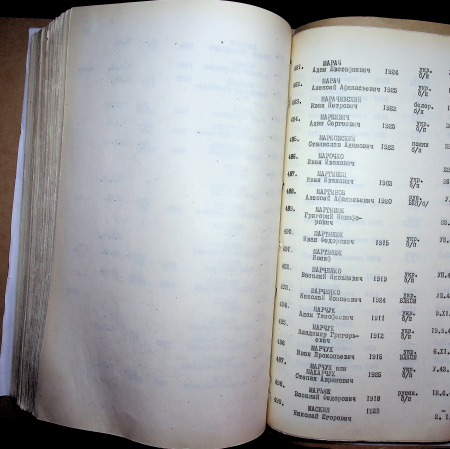 МАРАЧ
481. Адам Евстафиевич 1924 укр. б/п
482. МАРАЧ
Алексей Афанасьевич 1925 укр. б/п
483. МАРАЧЕВСКИЙ
Иван Петрович 1922 белор. б/п
484. МАРКЕВИЧ
Адам Сергеевич 1925 укр. б/п
485. МАРКОВСКИЙ
Станислав Адамович 1923 поляк б/п
486. МАРОЧКО
Иван Иванович
487. МАРТИНЮК
Иван Иванович 1903 укр. б/п
488. МАРТИНЮК
Алексей Афанасьевич 1920 укр.
489. МАРТИНЮК
Григорий Никифорович
490. МАРТИНЮК
Иван Федорович 1915 укр. б/п
491. МАРТИНЮК
492. МАРЧЕНКО
Василий Яковлевич 1919 укр. б/п
493. МАРЧЕНКО
Николай Моисеевич 1924 укр. ВЛКСМ
494. МАРЧУК
Адам Тимофеевич 1911 укр. б/п
495. МАРЧУК
Владимир Григорьевич 1912 укр. б/п
496 МАРЧУК
Иван Прокопьевич 1915 укр. ВЛКСМ
497. МАРЧУК или
МАКАРЧУК
Степан 1925 укр. б/п
498. МАРЬИН
Василий Федорович 1918 русск. б/п
499. МАСКИН 1923
Николай Егорович